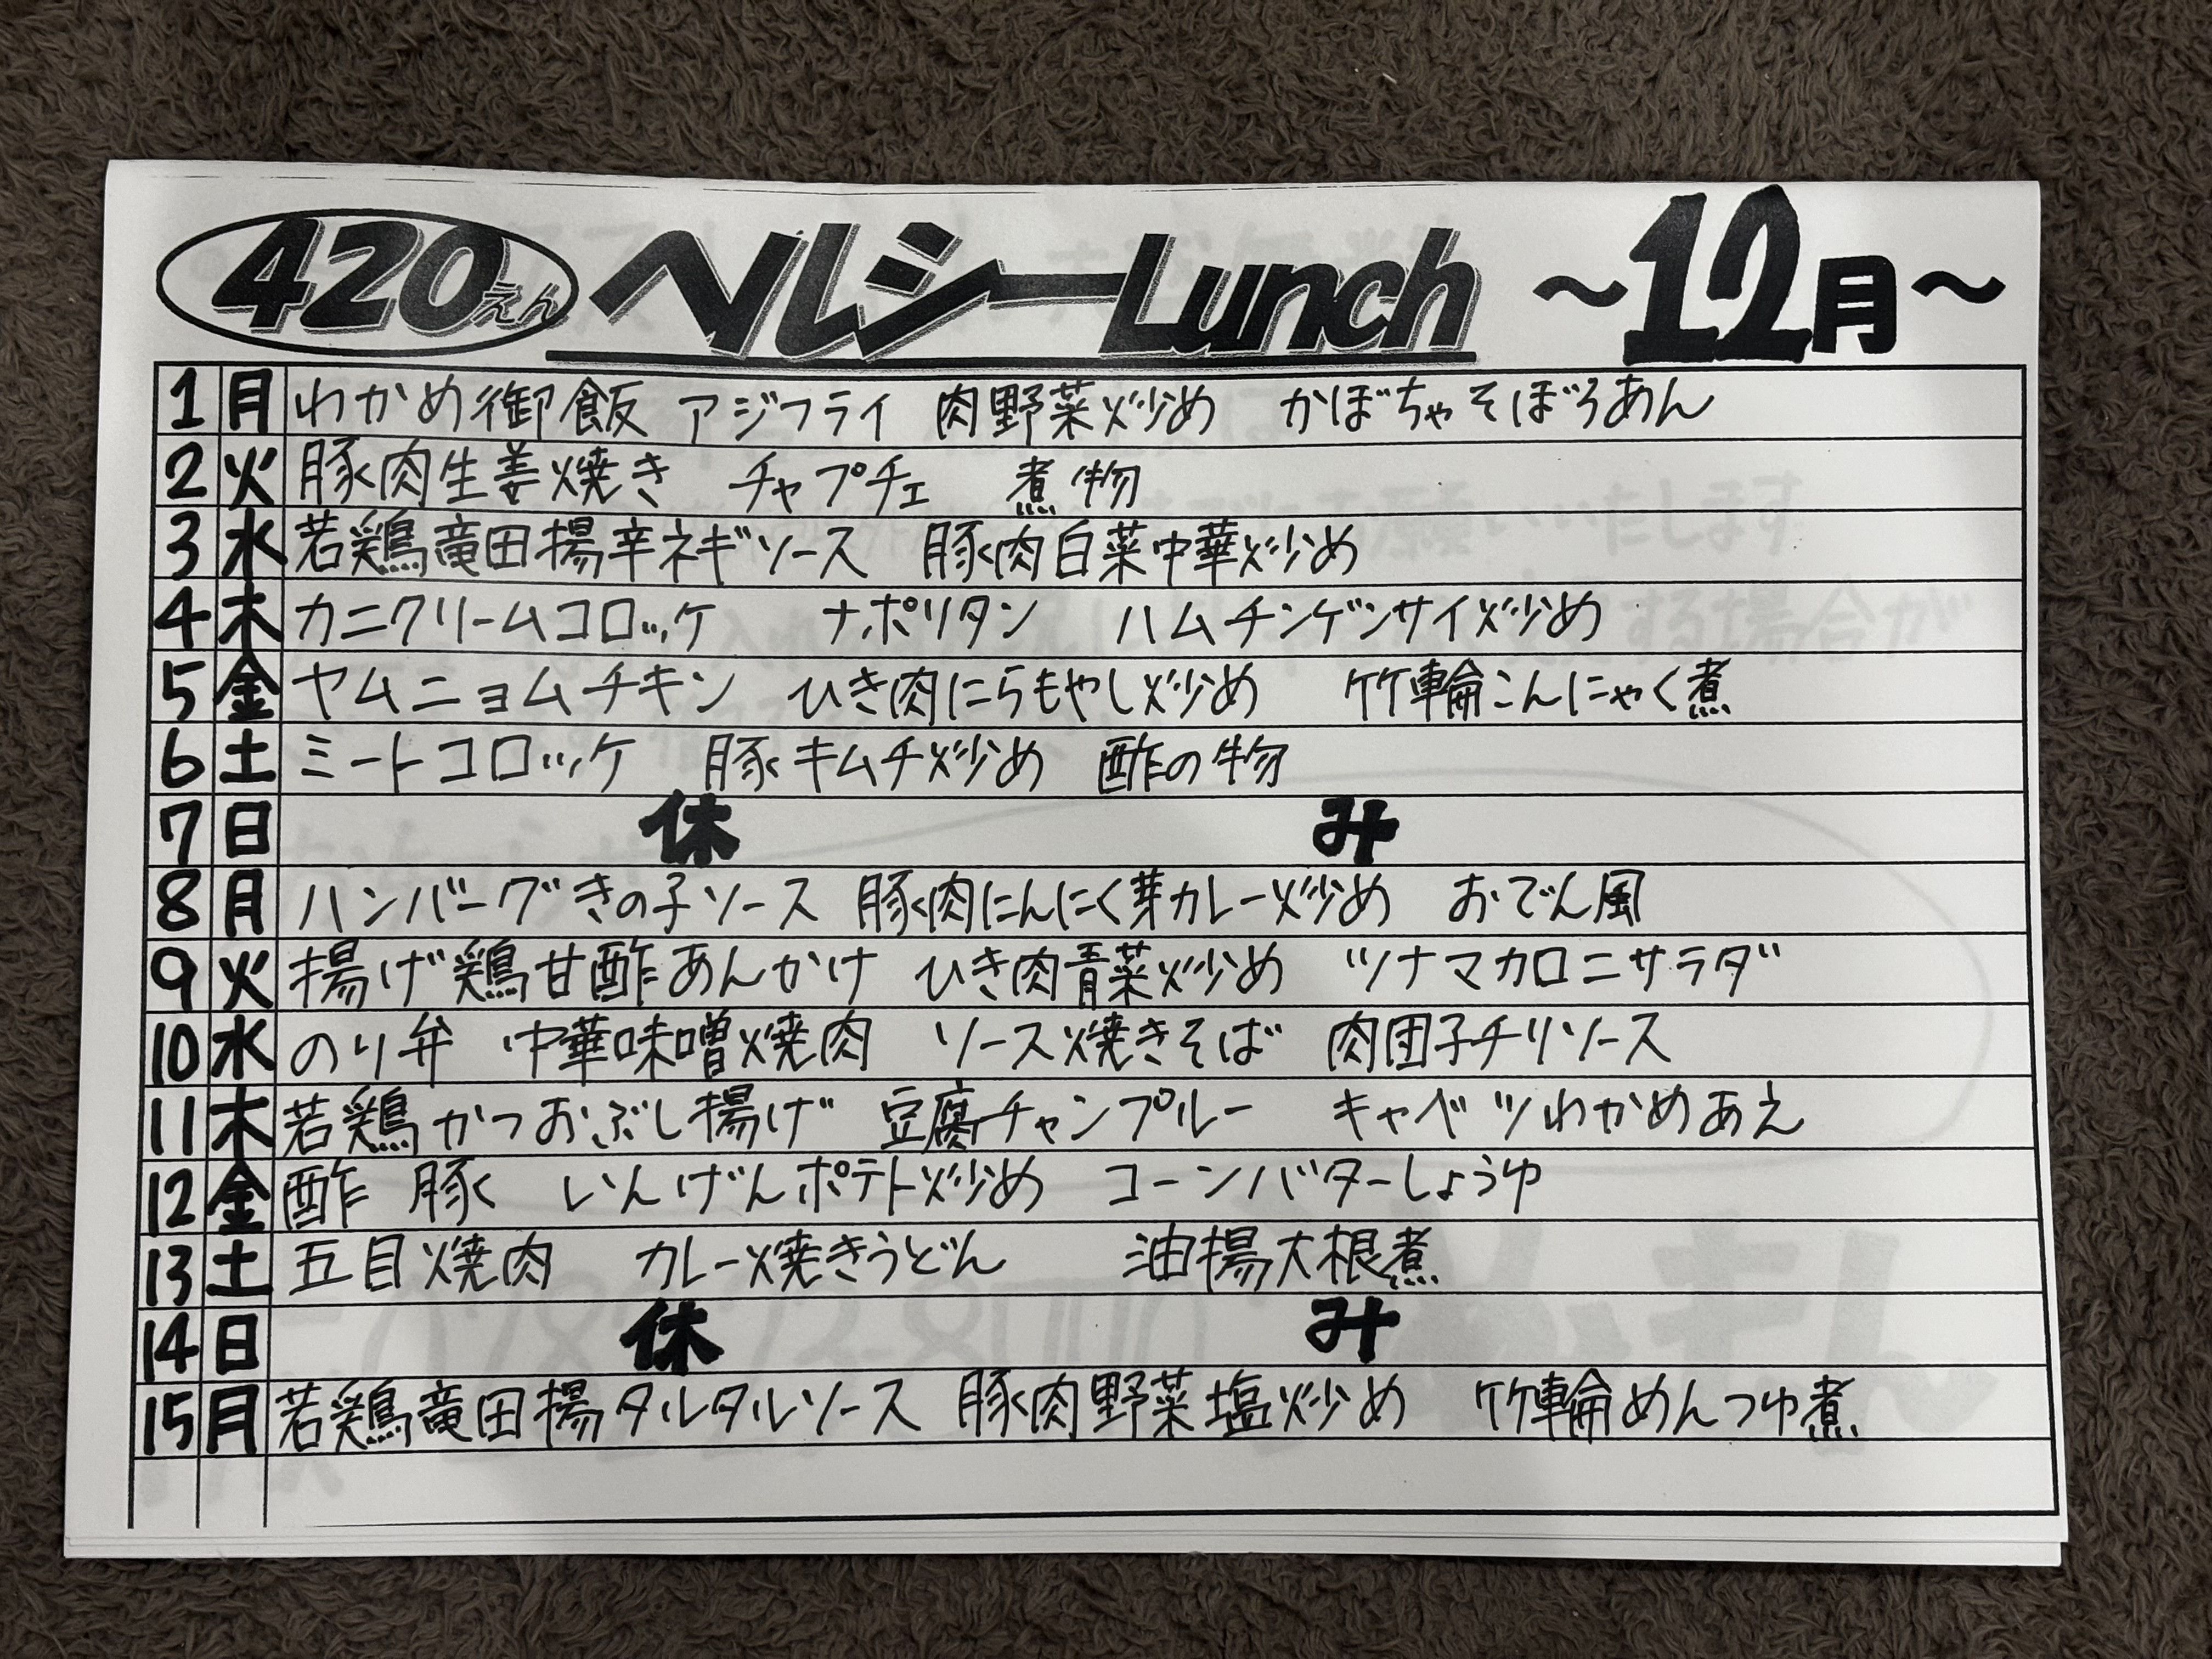 420えん ヘルシーLunch ～12月～
1 月 わかめ御飯 アジフライ 肉野菜炒め かぼちゃそぼろあん
2 火 豚肉生姜焼き チャプチェ 煮物
3 水 若鶏竜田揚辛ネギソース 豚肉白菜中華炒め
4 木 カニクリームコロッケ ナポリタン ハムチンゲンサイ炒め
5 金 ヤムニョムチキン ひき肉にらもやし炒め 竹輪こんにゃく煮
6 土 ミートコロッケ 豚キムチ炒め 酢の物
7 日 休み
8 月 ハンバーグきの子ソース 豚肉にんにく芽カレー炒め おでん風
9 火 揚げ鶏甘酢あんかけ ひき肉青菜炒め ツナマカロニサラダ
10 水 のり弁 中華味噌焼肉 ソース焼きそば 肉団子チリソース
11 木 若鶏かつおぶし揚げ 豆腐チャンプルー キャベツわかめあえ
12 金 酢豚 いんげんポテト炒め コーンバターしょうゆ
13 土 五目焼肉 カレー焼きうどん 油揚大根煮
14 日 休み
15 月 若鶏竜田揚タルタルソース 豚肉野菜塩炒め 竹輪めんつゆ煮